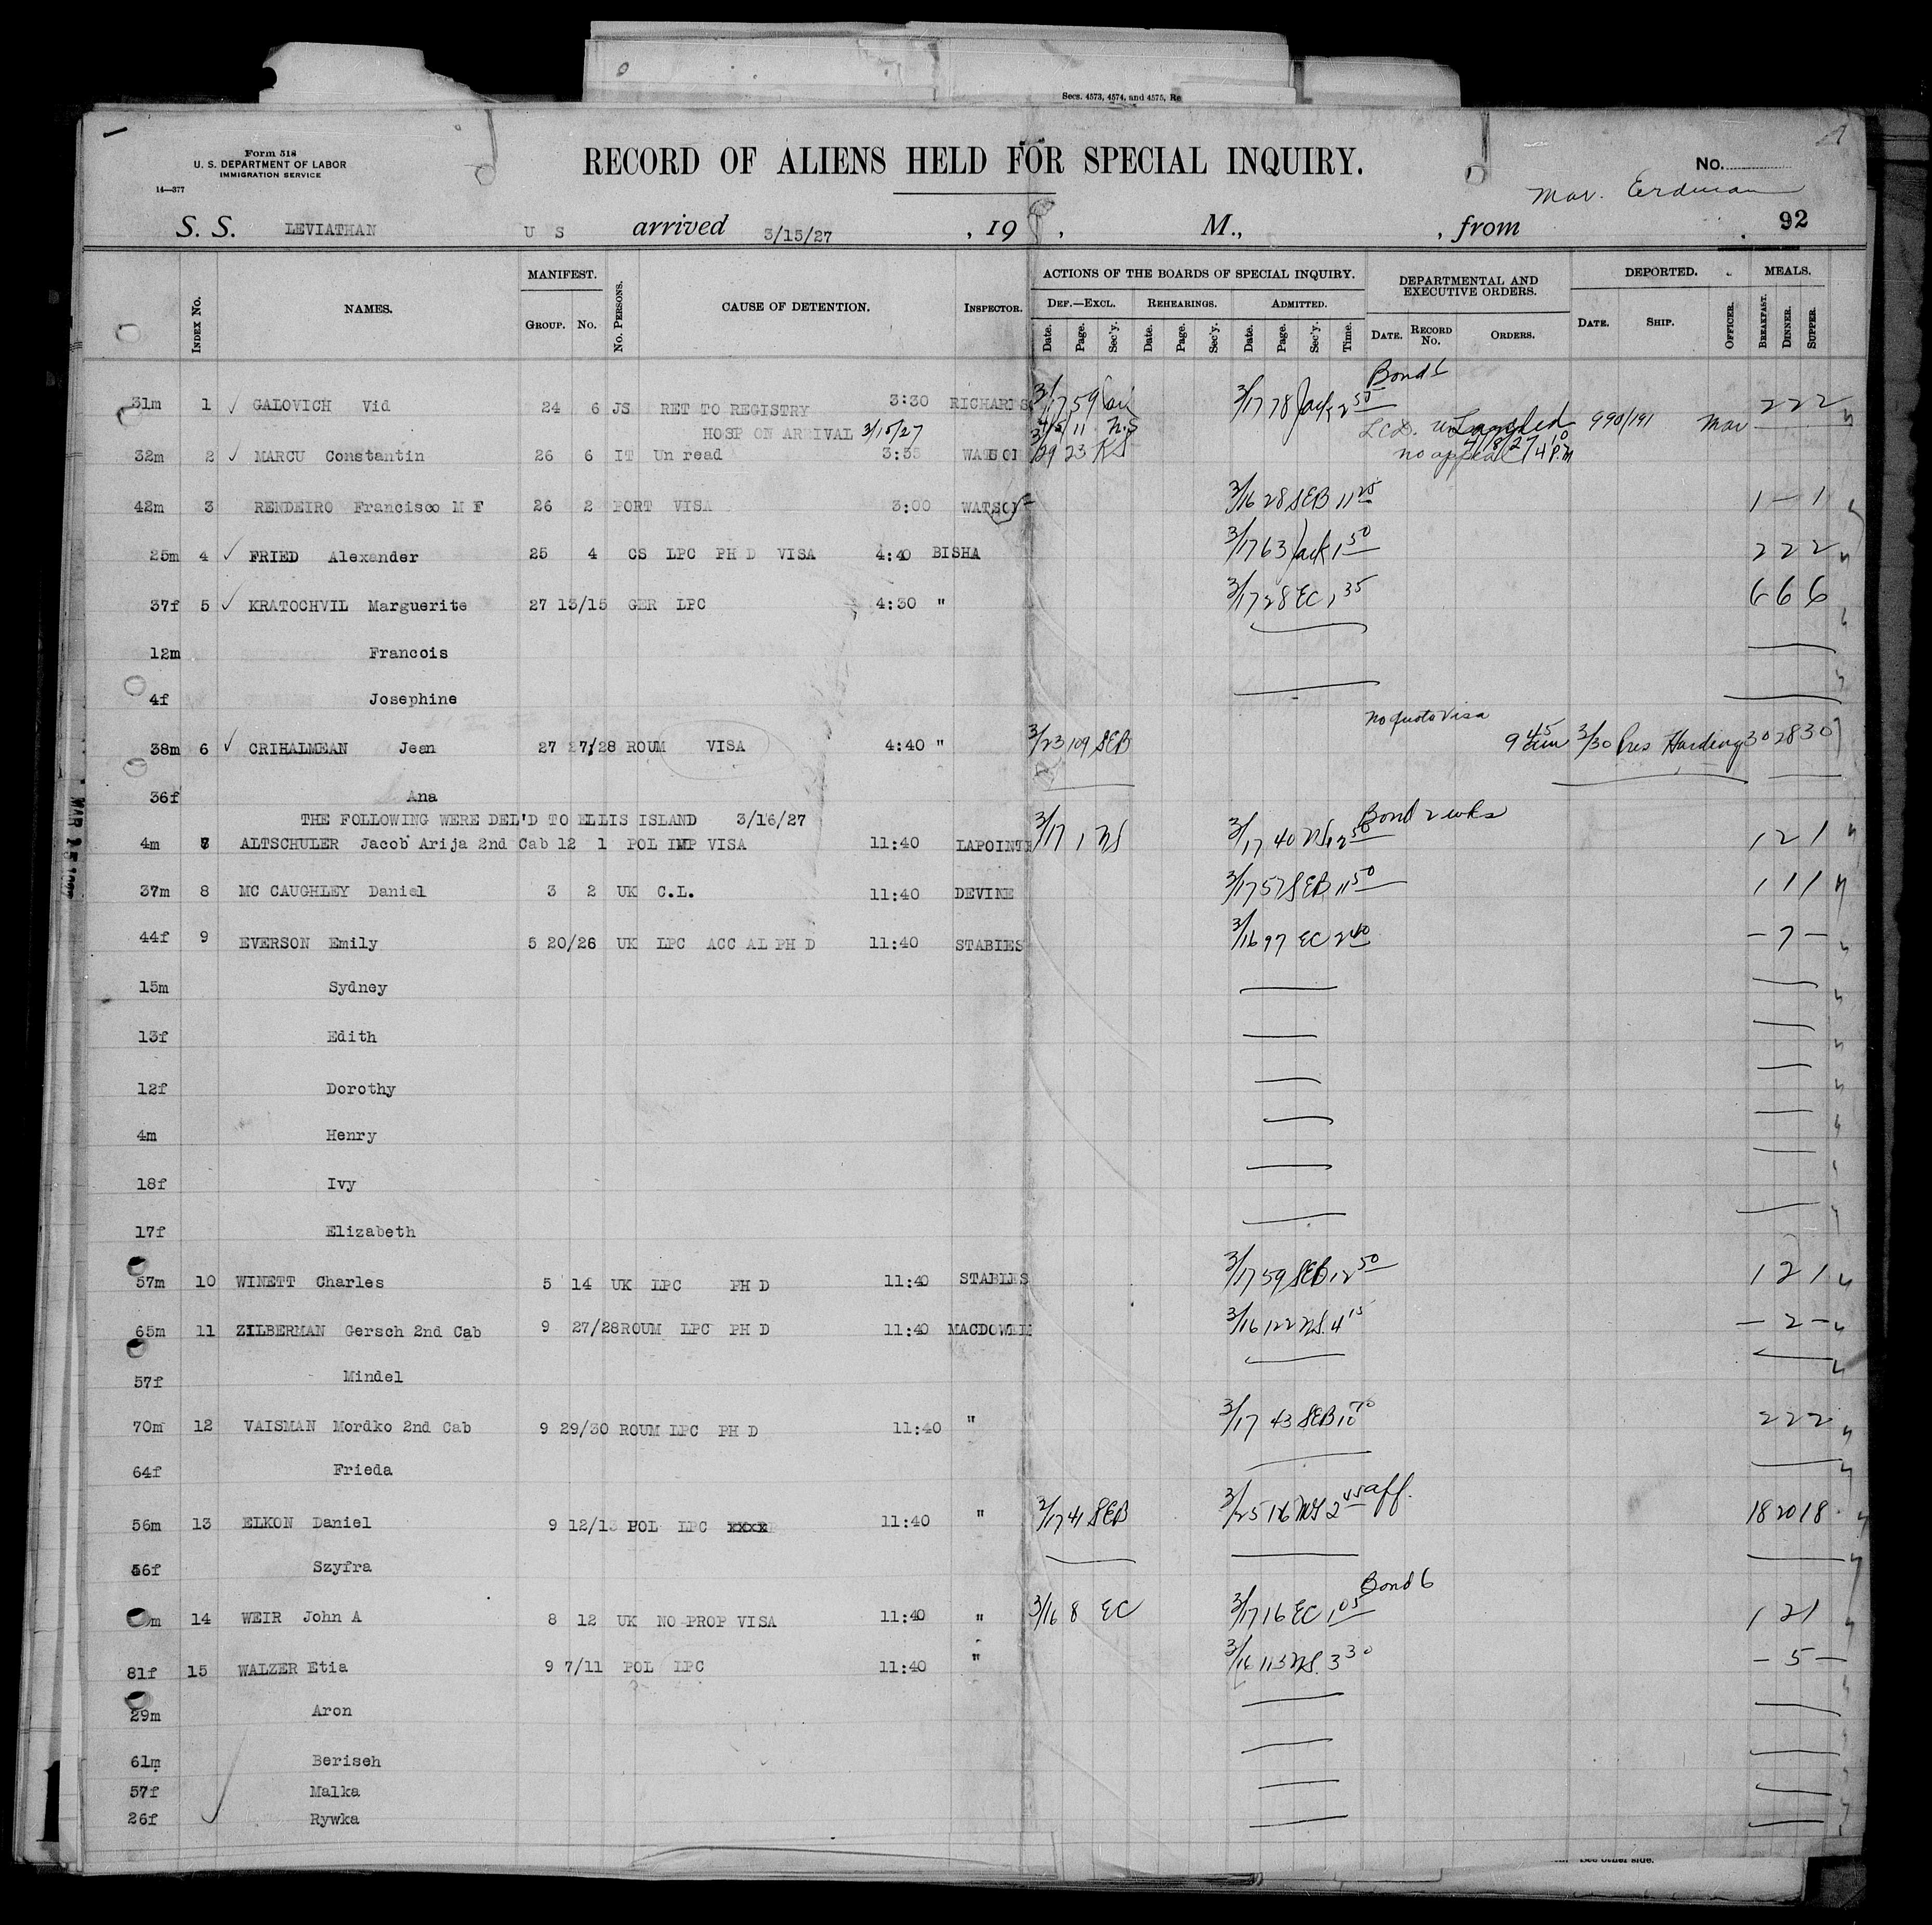 Secs. 4573, 4574, and 4575, Re
Form 518
U. S. DEPARTMENT OF LABOR
IMMIGRATION SERVICE
14—377
RECORD OF ALIENS HELD FOR SPECIAL INQUIRY.
No.
Mar. Erdman
S. S. LEVIATHAN U S arrived 3/15/27, 19 , M., , from 92
INDEX No. NAMES. MANIFEST. GROUP. No. No. PERSONS. CAUSE OF DETENTION. INSPECTOR. ACTIONS OF THE BOARDS OF SPECIAL INQUIRY. DEF.—EXCL. REHEARINGS. ADMITTED. DEPARTMENTAL AND EXECUTIVE ORDERS. DEPORTED. MEALS.
Date. Page. Sec'y. Date. Page. Sec'y. Date. Page. Sec'y. Time. DATE. RECORD No. ORDERS. DATE. SHIP. OFFICER. BREAKFAST. DINNER. SUPPER.
Bond 6
31m 1 GALOVICH Vid 24 6 JS RET TO REGISTRY 3:30 RICHARDS 3/17 59 3/17 78 Jack 2 50 2 2 2
HOSP ON ARRIVAL 3/15/27 11 NS Landed 990/191 Mar
32m 2 MARCU Constantin 26 6 IT Un read 3:35 WATSON 3/29 23 KS no appeal 4/8/27 4 P.M
42m 3 RENDEIRO Francisco M F 26 2 PORT VISA 3:00 WATSON 3/16 28 SEB 11 25 1 — 1
25m 4 FRIED Alexander 25 4 CS LPC PH D VISA 4:40 BISHA 3/17 63 Jack 1 50 2 2 2
37f 5 KRATOCHVIL Marguerite 27 13/15 GER LPC 4:30 " 3/17 28 EC 1 35 6 6 6
12m Francois
4f Josephine
no quota visa
38m 6 CRIHALMEAN Jean 27 27/28 ROUM VISA 4:40 " 3/23 109 SEB 9 45 am 3/30 Pres Harding 30 28 30
36f Ana
THE FOLLOWING WERE DEL'D TO ELLIS ISLAND 3/16/27 Bond 2 wks
4m 7 ALTSCHULER Jacob Arija 2nd Cab 12 1 POL IMP VISA 11:40 LAPOINTE 3/17 1 NS 3/17 40 NS 12 50 1 2 1
37m 8 MC CAUGHLEY Daniel 3 2 UK C.L. 11:40 DEVINE 3/17 57 SEB 11 50 1 1 1
44f 9 EVERSON Emily 5 20/26 UK LPC ACC AL PH D 11:40 STABIES 3/16 97 EC 2 40 — 7 —
15m Sydney
13f Edith
12f Dorothy
4m Henry
18f Ivy
17f Elizabeth
57m 10 WINETT Charles 5 14 UK LPC PH D 11:40 STABIES 3/17 59 SEB 12 50 1 2 1
65m 11 ZILBERMAN Gersch 2nd Cab 9 27/28 ROUM LPC PH D 11:40 MACDOWELL 3/16 122 NS. 4 15 — 2 —
57f Mindel
70m 12 VAISMAN Mordko 2nd Cab 9 29/30 ROUM LPC PH D 11:40 " 3/17 43 SEB 10 2 2 2
64f Frieda
56m 13 ELKON Daniel 9 12/13 POL LPC xxxx 11:40 " 3/17 41 SEB 3/25 NS 2 45 aff. 18 20 18
56f Szyfra
Bond 6
m 14 WEIR John A 8 12 UK NO PROP VISA 11:40 " 3/16 8 EC 3/17 16 EC 1 05 1 2 1
81f 15 WALZER Etia 9 7/11 POL LPC 11:40 " 3/16 113 NS. 3 30 — 5 —
29m Aron
61m Beriseh
57f Malka
26f Rywka
See other side.